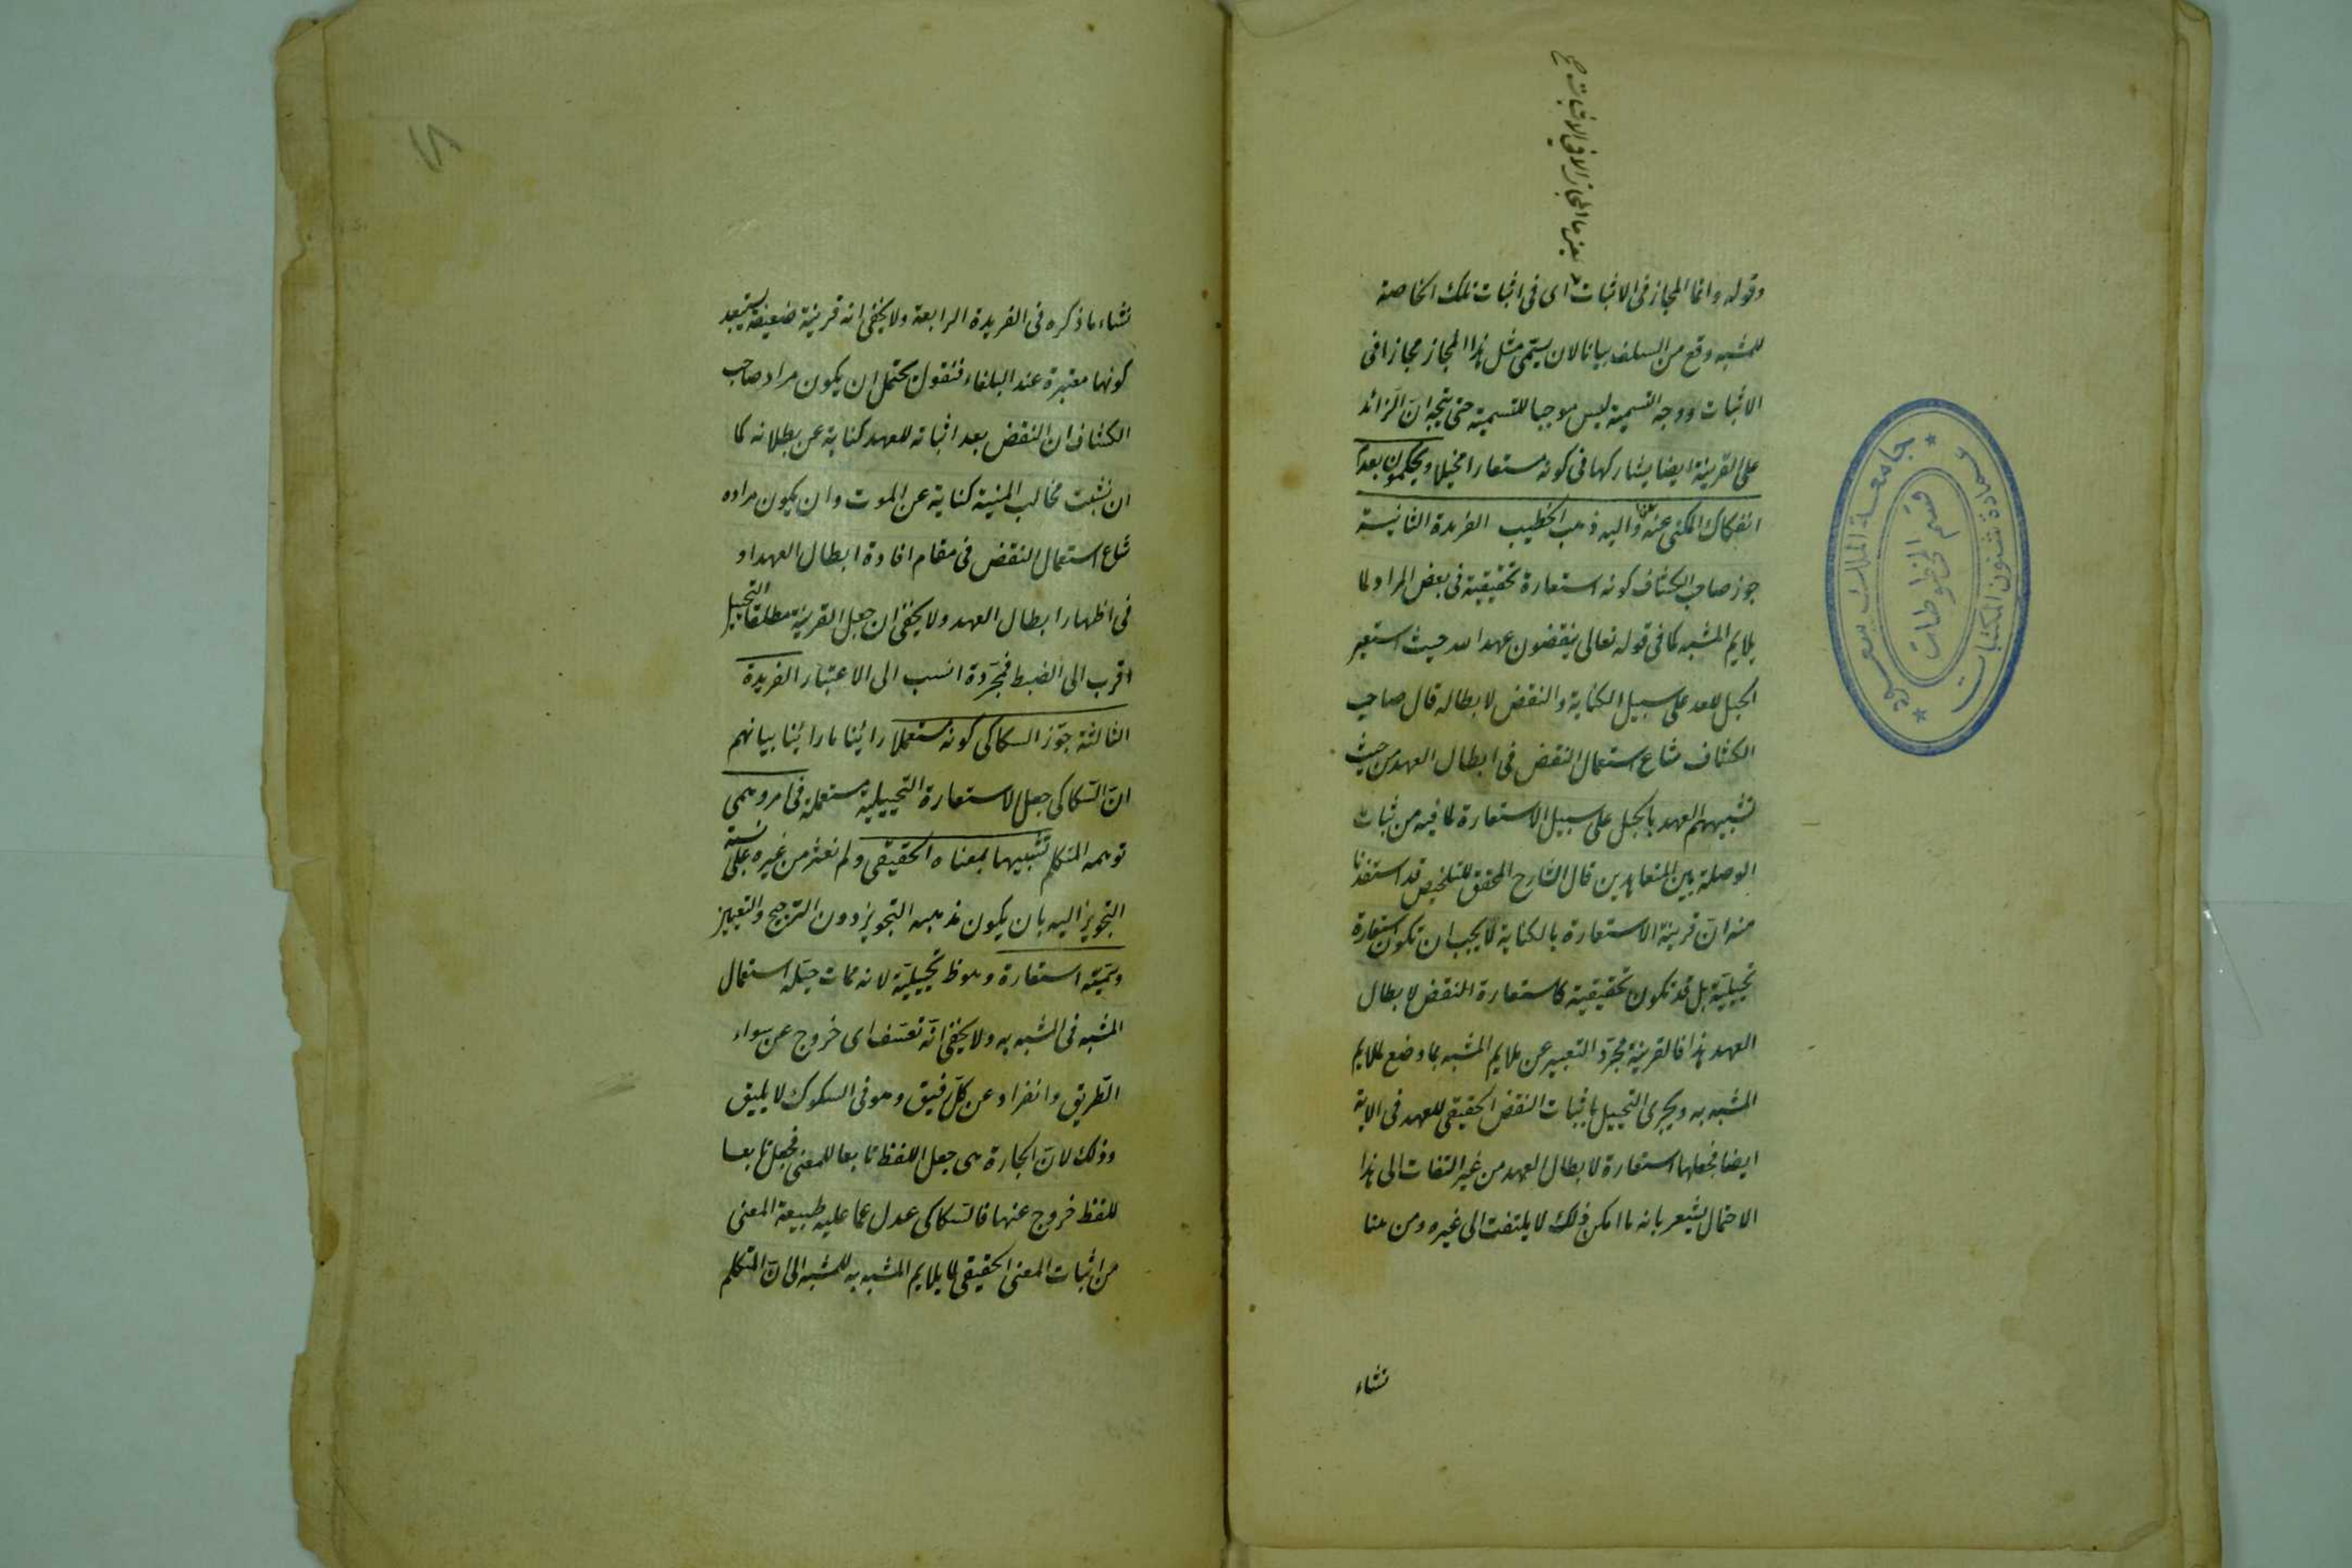 وقوله وانما المجاز فى الاثبات اى فى اثبات تلك الخاصة
للمشبه وقع من السلف بيانا لان يسمى مثل هذا المجاز مجازا فى
الاثبات ووجه التسمية ليس موجبا للتسمية حتى يتجه ان الزائد
على القرينة ايضا يشاركها فى كونه مستعارا مخيلا ويحكمون بعدم
انفكاك المكنى عنه عنها واليه ذهب الخطيب الفريدة الثانية
جوز صاحب الكشاف كونه استعارة تحقيقية فى بعض المواد لما
يلايم المشبه كما فى قوله تعالى ينقضون عهد الله حيث استعير
الحبل للعهد على سبيل الكناية والنقض لابطاله قال صاحب
الكشاف شاع استعمال النقض فى ابطال العهد من حيث
تشبيههم العهد بالحبل على سبيل الاستعارة لما فيه من ثبات
الوصلة بين المتعاهدين قال الشارح المحقق للتلخيص قد استفدنا
منه ان قرينة الاستعارة بالكناية لا يجب ان تكون استعارة
تخييلية بل قد تكون تحقيقية كاستعارة النقض لابطال
العهد هذا فالقرينة مجرد التعبير عن ملايم المشبه بما وضع لملايم
المشبه به ويجرى التخييل باثبات النقض الحقيقى للعهد فى الاية
ايضا فجعلها استعارة لابطال العهد من غير التفات الى هذا
الاحتمال يشعر بانه ما امكن ذلك لا يلتفت الى غيره ومن هنا
نشاء
نشاء ما ذكره فى الفريدة الرابعة ولا يخفى انه قرينة ضعيفة يستبعد
كونها معتبرة عند البلغاء فنقول يحتمل ان يكون مراد صاحب
الكشاف ان النقض بعد اثباته للعهد كناية عن بطلانه كما
ان نشبت مخالب المنية كناية عن الموت وان يكون مراده
شاع استعمال النقض فى مقام افادة ابطال العهد او
فى اظهار ابطال العهد ولا يخفى ان جعل القرينة مطلقا التخييل
اقرب الى الضبط فمجردة انسب الى الاعتبار الفريدة
الثالثة جوز السكاكى كونه مستعملا رائينا ما رائينا بيانهم
ان السكاكى جعل الاستعارة التخييلية مستعملة فى امر وهمى
توهمه المتكلم تشبيها بمعناه الحقيقى ولم نعثر من غيره على نسبة
التجويز اليه بان يكون مذهبه التجويز دون الترجيح والتعيين
وسميته استعارة وهو ظ تخييلية لانه مما ت خيله استعمال
المشبه فى المشبه به ولا يخفى انه تعسف اى خروج عن سواء
الطريق وانفراد عن كل رفيق وهو فى السلوك لا يليق
وذلك لان الجارة هى جعل اللفظ تابعا للمعنى فجعل تابعا
للفظ خروج عنها فالسكاكى عدل عما عليه طبيعة المعنى
من اثبات المعنى الحقيقى لما يلايم المشبه به للمشبه الى ان المتكلم
جامعة الملك سعود
عمادة شئون المكتبات
قسم المخطوطات